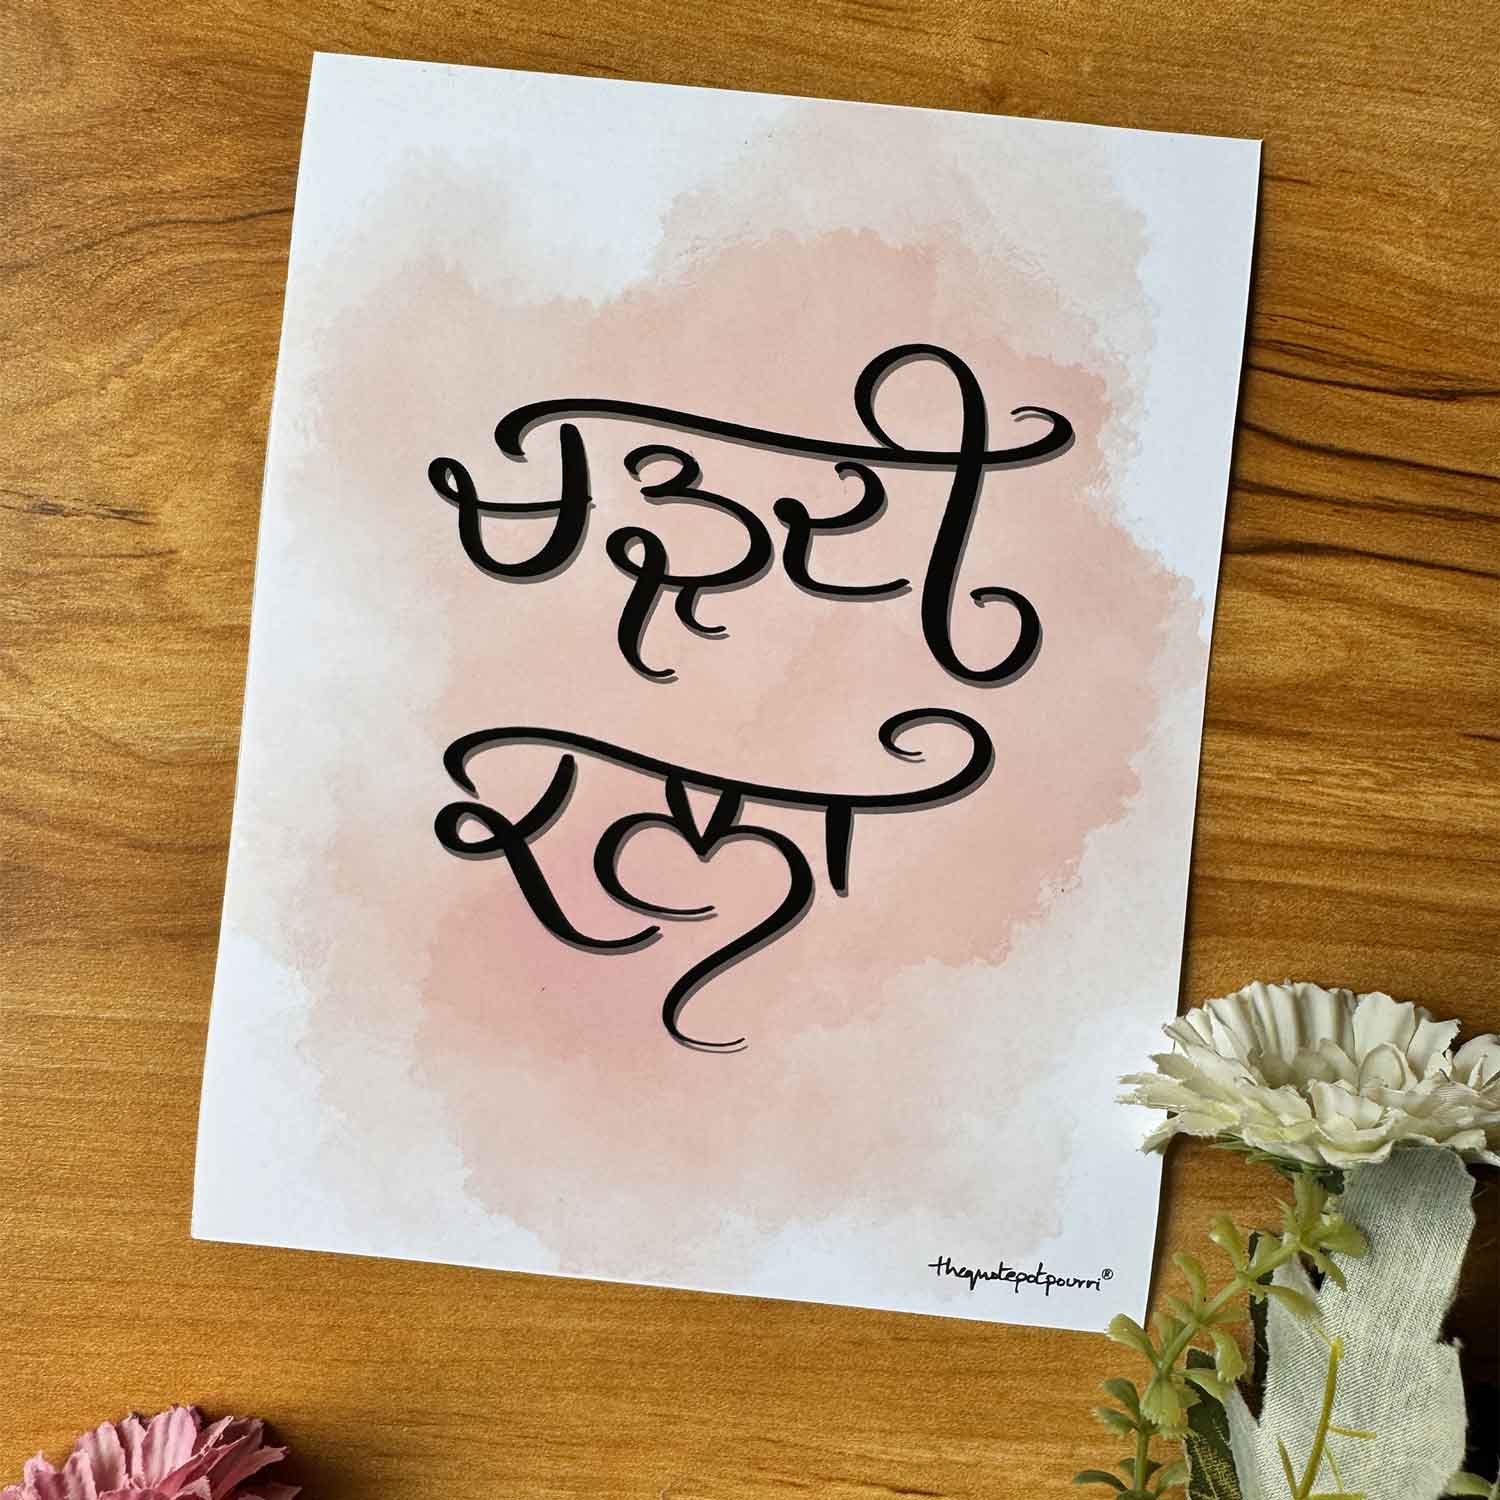 ਚੜ੍ਹਦੀ
ਕਲਾ
thequotepotpourri®